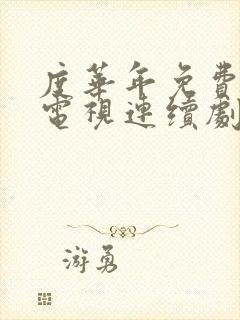 度華年免費
電視連續劇
游勇